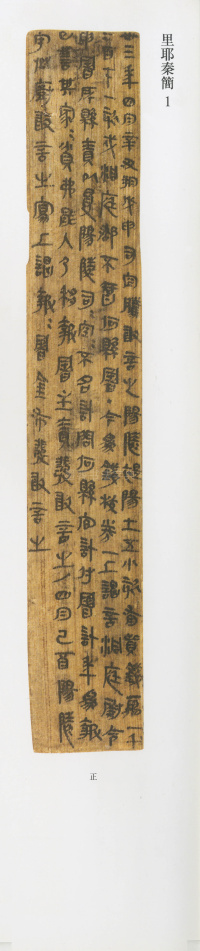 里耶秦簡 1
卅三年四月辛丑朔戊申司空騰敢言之陽陵褆陽士五小欬有貲錢萬一千
二百七十一小欬戍洞庭郡不智何縣署·今為錢校券一上謁言洞庭尉令
申署所縣責以受陽陵司空=不名計問何縣官計付署計年為報
已訾其家=貧弗能入乃移報署主責發敢言之/四月己酉陽陵
守丞廚敢言之寫上謁報=署金布發敢言之
正